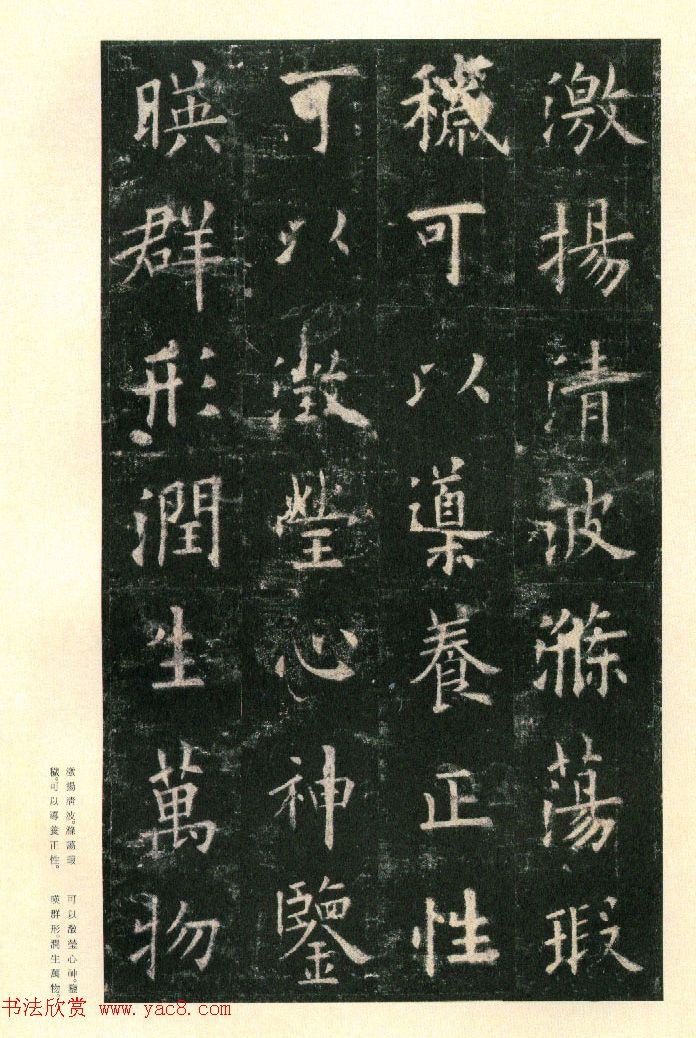 激揚清波滌蕩瑕
穢可以導養正性
可以澂瑩心神鑒
暎群形潤生萬物
激揚清波。滌蕩瑕
穢。可以導養正性。
可以澂瑩心神。鑒
暎群形。潤生萬物。
书法欣赏 www.yac8.com